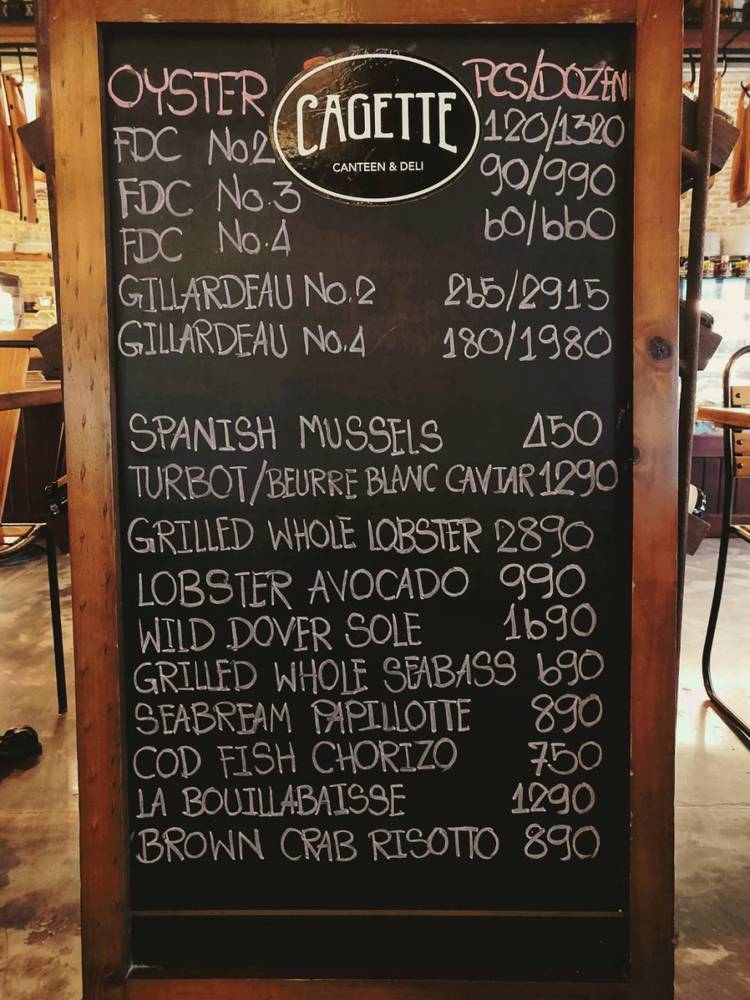 OYSTER PCS/DOZEN
CAGETTE
CANTEEN & DELI
FDC No2 120/1320
FDC No.3 90/990
FDC No.4 60/660
GILLARDEAU No.2 265/2915
GILLARDEAU No.4 180/1980
SPANISH MUSSELS 450
TURBOT/BEURRE BLANC CAVIAR 1290
GRILLED WHOLE LOBSTER 2890
LOBSTER AVOCADO 990
WILD DOVER SOLE 1690
GRILLED WHOLE SEABASS 690
SEABREAM PAPILLOTTE 890
COD FISH CHORIZO 750
LA BOUILLABAISSE 1290
BROWN CRAB RISOTTO 890